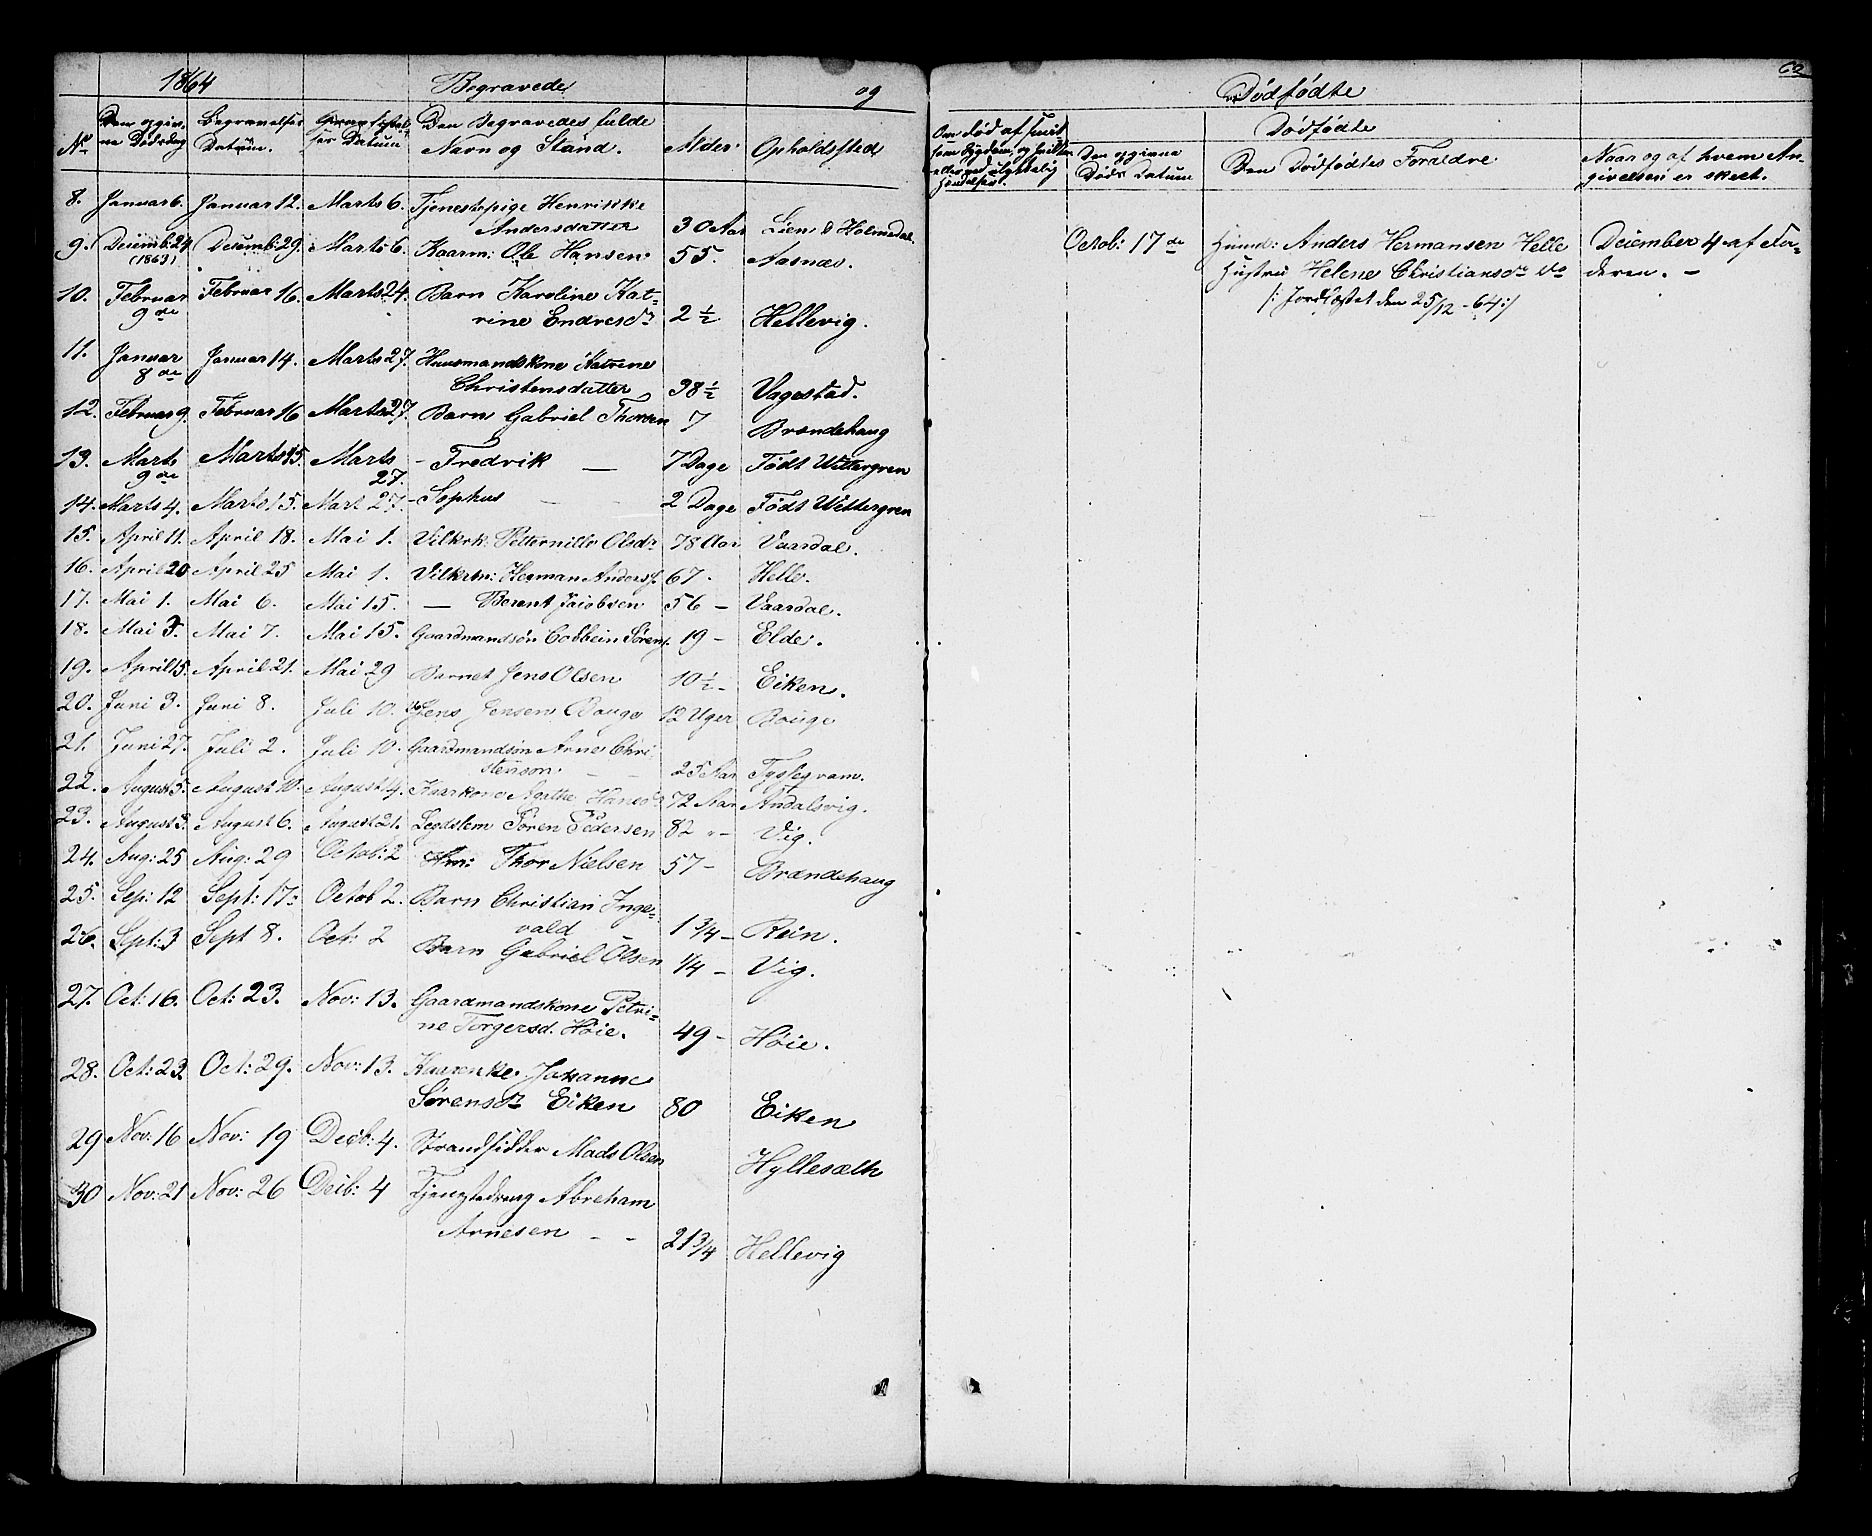 1864 Begravede og
No Den opgivne Dødsdag Begravelses Datum. Datum Den Begravedes fulde Navn og Stand. Alder Opholdsted
8. Januar 6. Januar 12. Marts 6. Tjenestepige Henrikke
Andersdatter 30 Aar Lien Holmedal
9. Decemb: 24 (1863) Decemb: 29. Marts 6. Kaarm: Ole Hansen 55. Aasnæs.
10. Februar 9de Februar 16. Marts 24. Barn Karoline Kat-
rine Endresdr 2 1/2 Hellevig.
11. Januar 8de Januar 14. Marts 27. Huusmandskone Katrine
Christensdatter 38 1/2 Vagestad.
12. Februar 9. Februar 16 Marts 27. Barn Gabriel Thorsen 7 Brændehaug
13. Marts 9de Marts 15. Marts 27. - Fredrik — 7 Dage Født Wittergren
14. Marts 4. Marts 15. Mart 27. - Sophus — 2 Dage Født Wittergren
15. April 11. April 18. Mai 1. Vilkrk: Petternille Olsdr 78 Aar Vaardal.
16. April 20 April 25 Mai 1. Vilkrm: Herman Anders. 67. Helle.
17. Mai 1. Mai 6. Mai 15. — Berent Jacobsen 56 — Vaardal.
18. Mai 3. Mai 7. Mai 15. Gaardmandsøn Colbein Søren. 19 - Elde.
19. April 15. April 21. Mai 29 Barnet Jens Olsen 10 1/2 - Eiken.
20. Juni 3. Juni 8. Juli 10. Jens Jensen Bauge 12 Uger Bauge
21. Juni 27. Juli 2. Juli 10. Gaardmandsøn Arne Chri-
stenson. — — 25 Aar
22. August 5. August 10. August 14. Kaarkone Agathe Hansdr 72 Aar Andalsvig.
23. August 3. August 6. August 21. Legdslem Søren Pedersen 82 " - Vig.
24. Aug: 25 Aug: 29 Octob: 2 Hm: Thor Nielsen 57 - Brændehaug
25. Sep: 12 Sept: 17. Octob 2. Barn Christian Inge-
vald 1 3/4 - Rein.
26. Sept: 3 Sept 8. Oct: 2 Barn Gabriel Olsen 1/4 - Vig.
27. Oct: 16. Oct: 23. Nov: 13. Gaardmandskone Petri-
ne Torgersd. Høie. 49 - Høie.
28. Oct: 23. Oct: 29. Nov: 13. Johanne
Sørensdr Eiken 80 Eiken
29 Nov: 16 Nov: 19 Decb: 4. Strandsidder Mads Olsen Hyllesæth
30 Nov: 21 Nov: 26 Decb: 4 Tjenstedreng Abreham
Arnesen - - 21 3/4 Hellevig
Dødfødte
Dødfødte
Den opgivne Døds Datum Den Dødfødtes Forældre Naar og af hvem An-
givelsen er skeet.
Octob: 17de Huusm: Anders Hermansen Helle December 4 af Fa-
Hustru Helene Christiansdr deren. -
/: Jordfæstet den 25/12 - 64 :/